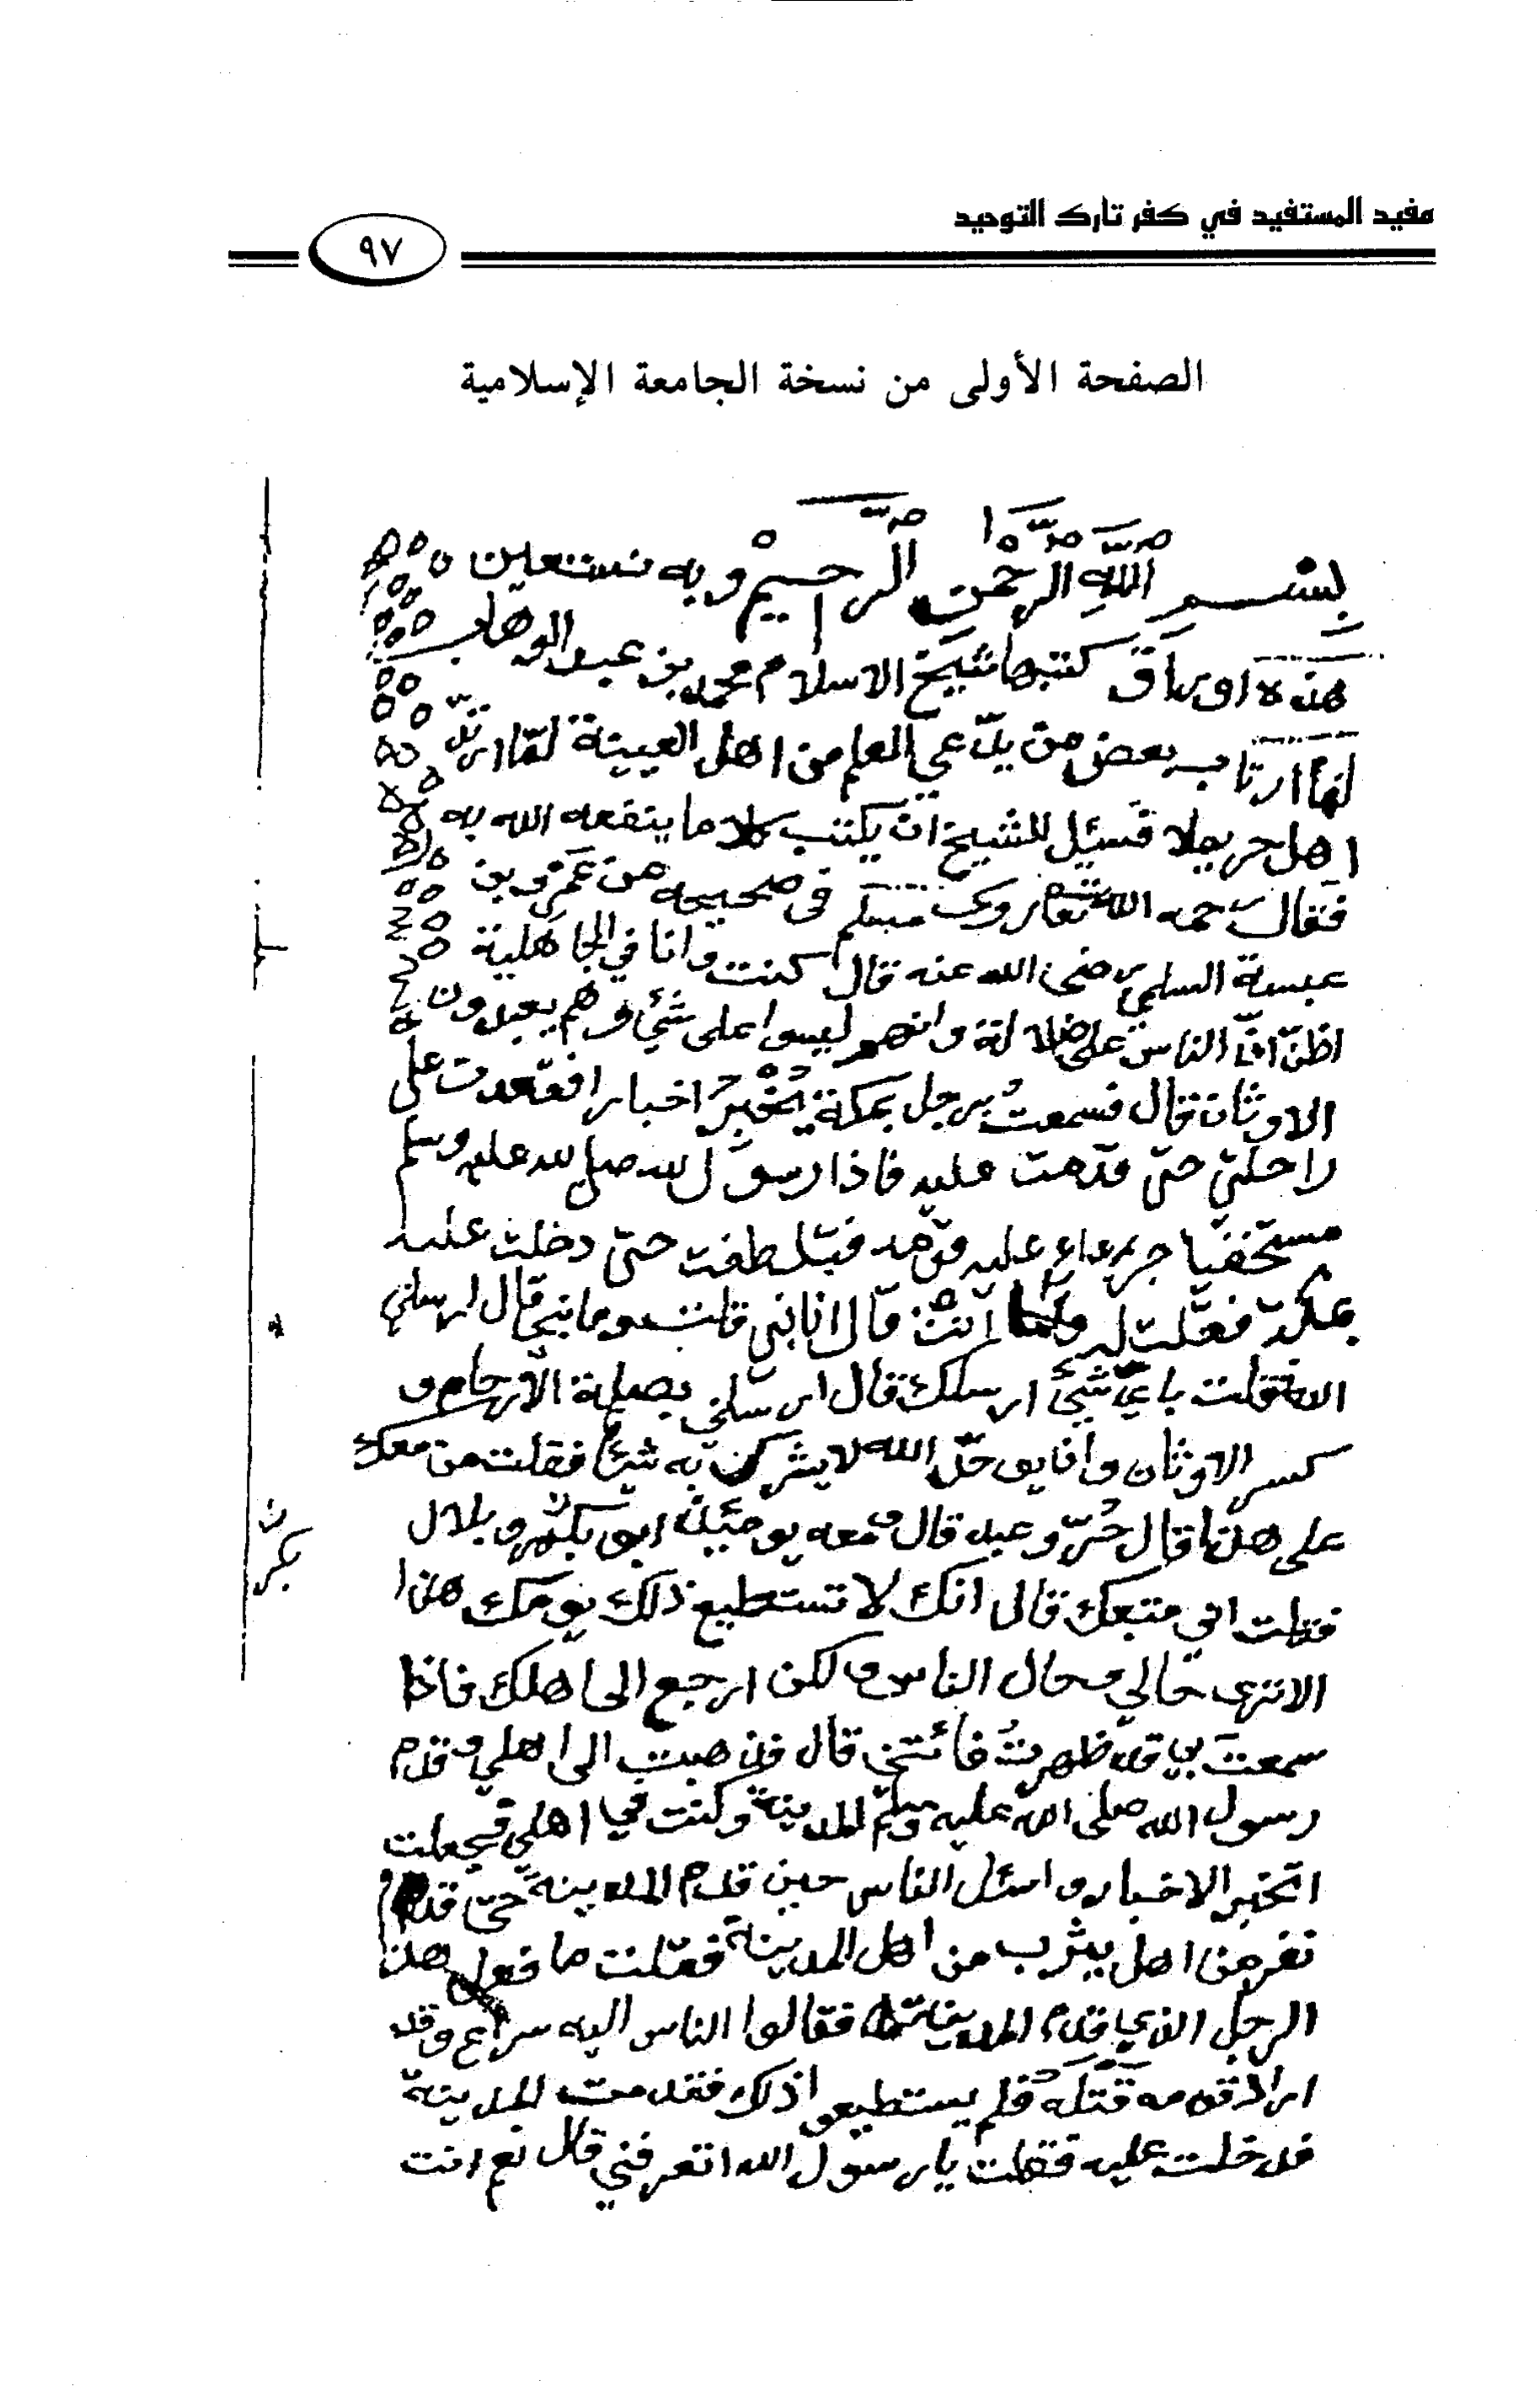 مفيد المستفيد في كفر تارك التوحيد
٩٧
الصفحة الأولى من نسخة الجامعة الإسلامية
بسم الله الرحمن الرحيم وبه نستعين
هذه اوراق كتبها شيخ الاسلام محمد بن عبد الوهاب
لما ارتاب بعض من يدّعي العلم من اهل العيينة لمّا ارتد
اهل حريملا فسئل الشيخ ان يكتب كلاما ينفعه الله به
فقال رحمه الله تعا روى مسلم في صحيحه عن عمرو بن
عبسة السلمي رضي الله عنه قال كنت وانا في الجاهلية
اظنّ انّ الناس على ضلالة وانهم ليسوا على شئ وهم يعبدون
الاوثان قال فسمعتُ برجل بمكة يُخْبِرُ اخبارا فقعدت على
راحلتي حتى قدمت عليه فاذا رسول الله صلى الله عليه وسلم
مستخفيا جرءاء عليه قومه فتلطفت حتى دخلت عليه
بمكة فقلت له وما انت قال انا نبي قلت وما نبي قال ارسلني
الله قلت باي شئ ارسلك قال ارسلني بصلة الارحام و
كسر الاوثان وان يوحّد الله لا يشرك به شئ فقلت من معك
على هذا قال حرّ وعبد قال ومعه يومئذ ابو بكر وبلال
بكر
فقلت اني متبعك قال انك لا تستطيع ذلك يومك هذا
الا ترى حالي وحال الناس ولكن ارجع الى اهلك فاذا
سمعت بي قد ظهرتُ فائتني قال فذهبت الى اهلي وقدم
رسول الله صلى الله عليه وسلم المدينة وكنت في اهلي فجعلت
اتخبر الاخبار واسئل الناس حين قدم المدينة حتى قدم
نفر من اهل يثرب من اهل المدينة فقلت ما فعل هذا
الرجل الذي قدم المدينة فقالوا الناس اليه سراع وقد
اراد قومه قتله فلم يستطيعوا ذلك فقدمت المدينة
فدخلت عليه فقلت يا رسول الله اتعرفني قال نعم انت